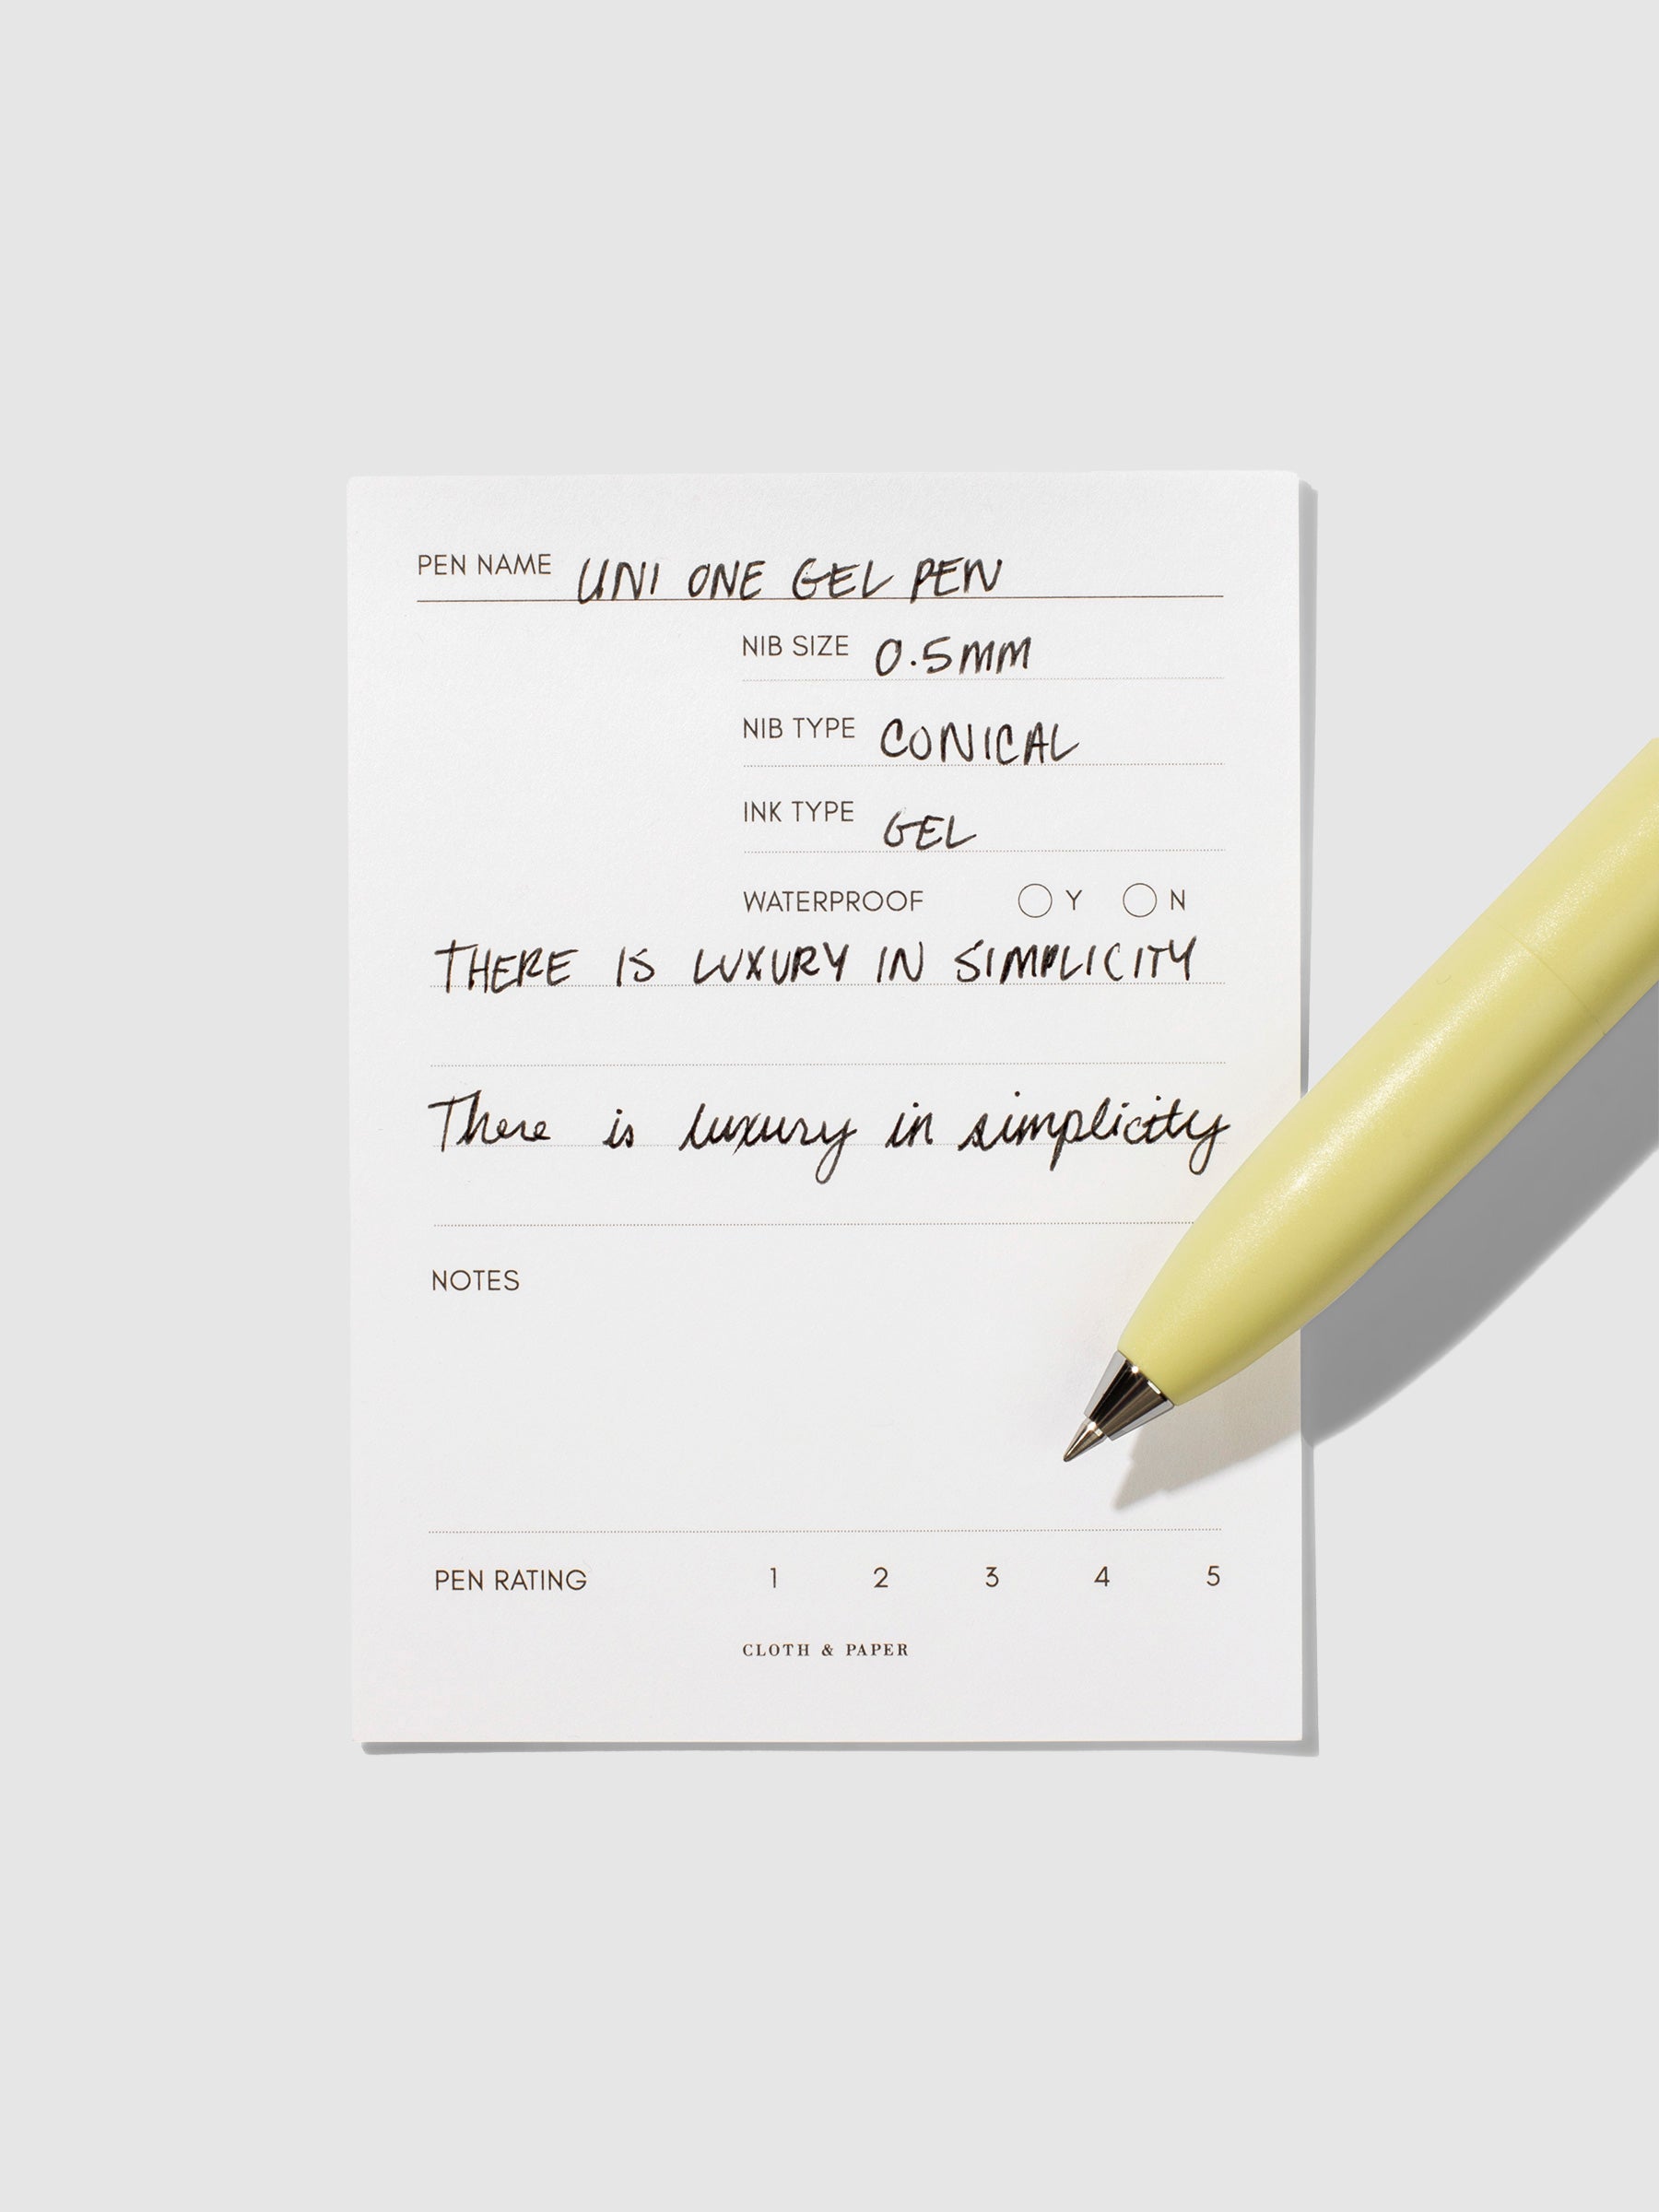 PEN NAME UNI ONE GEL PEN
NIB SIZE 0.5MM
NIB TYPE CONICAL
INK TYPE GEL
WATERPROOF Y N
THERE IS LUXURY IN SIMPLICITY
There is luxury in simplicity
NOTES
PEN RATING 1 2 3 4 5
CLOTH & PAPER